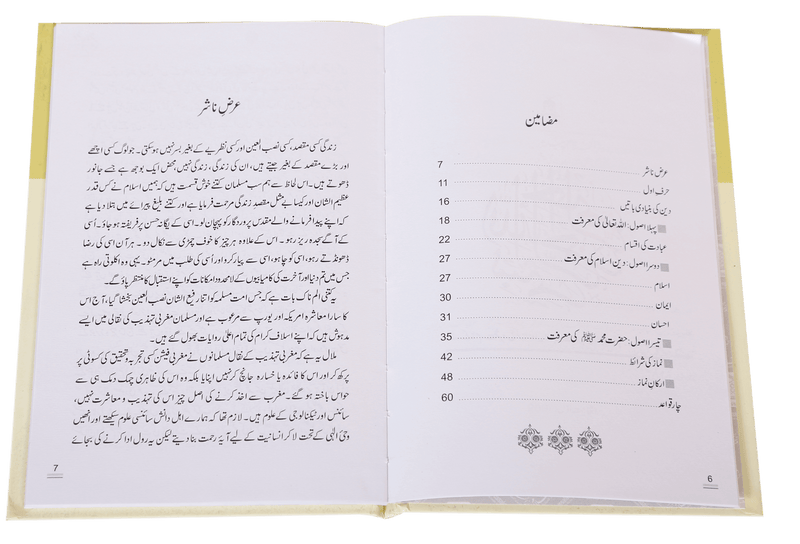 مضامین
عرض ناشر 7
حرف اول 11
دین کی بنیادی باتیں 16
پہلا اصول: اللہ تعالیٰ کی معرفت 18
عبادت کی اقسام 22
دوسرا اصول: دین اسلام کی معرفت 27
اسلام 27
ایمان 30
احسان 31
تیسرا اصول: حضرت محمد ﷺ کی معرفت 35
نماز کی شرائط 42
ارکان نماز 48
چار قواعد 60
6
عرضِ ناشر
زندگی کسی مقصد، کسی نصب العین اور کسی نظریے کے بغیر بسر نہیں ہوسکتی۔ جو لوگ کسی اچھے
اور بڑے مقصد کے بغیر جیتے ہیں، ان کی زندگی، زندگی نہیں، محض ایک بوجھ ہے جسے جانور
ڈھوتے ہیں۔ اس لحاظ سے ہم سب مسلمان کتنے خوش قسمت ہیں کہ ہمیں اسلام نے کس قدر
عظیم الشان اور کیسا بے مثل مقصدِ زندگی مرحمت فرمایا ہے اور کتنے بلیغ پیرائے میں بتلا دیا ہے
کہ اپنے پیدا فرمانے والے مقدس پروردگار کو پہچان لو۔ اسی کے یگانہ حسن پر فریفتہ ہو جاؤ۔ اُسی
کے آگے سجدہ ریز رہو۔ اس کے علاوہ ہر چیز کا خوف چمڑی سے نکال دو۔ ہر آن اسی کی رضا
ڈھونڈتے رہو، اسی کو چاہو، اسی سے پیار کرو اور اُسی کی طلب میں مر مٹو۔ یہی وہ اکلوتی راہ ہے
جس میں تم دنیا اور آخرت کی کامیابیوں کے لامحدود امکانات کو اپنے استقبال کا منتظر پاؤ گے۔
یہ کتنی الم ناک بات ہے کہ جس امت مسلمہ کو اتنا رفیع الشان نصب العین بخشا گیا، آج اس
کا سارا معاشرہ امریکہ اور یورپ سے مرعوب ہے اور مسلمان مغربی تہذیب کی نقالی میں ایسے
مدہوش ہیں کہ اپنے اسلاف کرام کی تمام اعلیٰ روایات بھول گئے ہیں۔
ملال یہ ہے کہ مغربی تہذیب کے نقال مسلمانوں نے مغربی فیشن کسی تجربہ و تحقیق کی کسوٹی پر
پرکھ کر اور اس کا فائدہ یا خسارہ جانچ کر نہیں اپنایا بلکہ وہ اس کی ظاہری چمک دمک ہی سے
حواس باختہ ہو گئے۔ مغرب سے اخذ کرنے کی اصل چیز اس کی تہذیب و معاشرت نہیں،
سائنس اور ٹیکنالوجی کے علوم ہیں۔ لازم تھا کہ ہمارے اہل دانش سائنسی علوم سیکھتے اور انھیں
وحیٔ الٰہی کے تحت لا کر انسانیت کے لیے آیۂ رحمت بنا دیتے لیکن یہ رول ادا کرنے کی بجائے
7